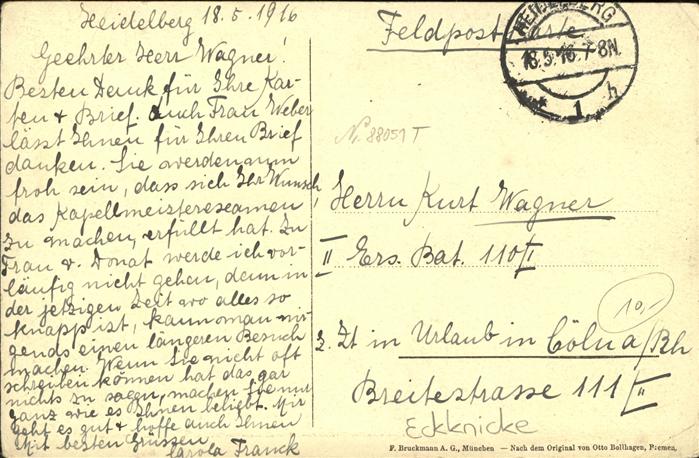 Heidelberg 18.5.1916
Geehrter Herr Wagner!
Besten Dank für Ihre Kar-
ten & Brief. Auch Frau Weber
lässt Ihnen für Ihren Brief
danken. Sie werden nun
froh sein, dass sich Ihr Wunsch,
das Kapellmeisterexamen
zu machen, erfüllt hat. Zu
Frau v. Donat werde ich vor-
läufig nicht gehen, denn in
der jetzigen Zeit wo alles so
knapp ist, kann man nir-
gends einen längeren Besuch
machen. Wenn Sie nicht oft
schreiben können hat das gar
nichts zu sagen, machen Sie nur
ganz wie es Ihnen beliebt. Mir
geht es gut & hoffe auch Ihnen
Mit besten Grüssen
Carola Franck
Feldpostkarte
HEIDELBERG
18.5.16.7-8N.
* 1 h
Nr. 88051 T
Herrn Kurt Wagner
II Ers. Bat. 110/I
10,-
z. Zt in Urlaub in Cöln a/Rh
Breitestrasse 111/II
Eckknicke
F. Bruckmann A. G., München — Nach dem Original von Otto Bollhagen, Bremen.